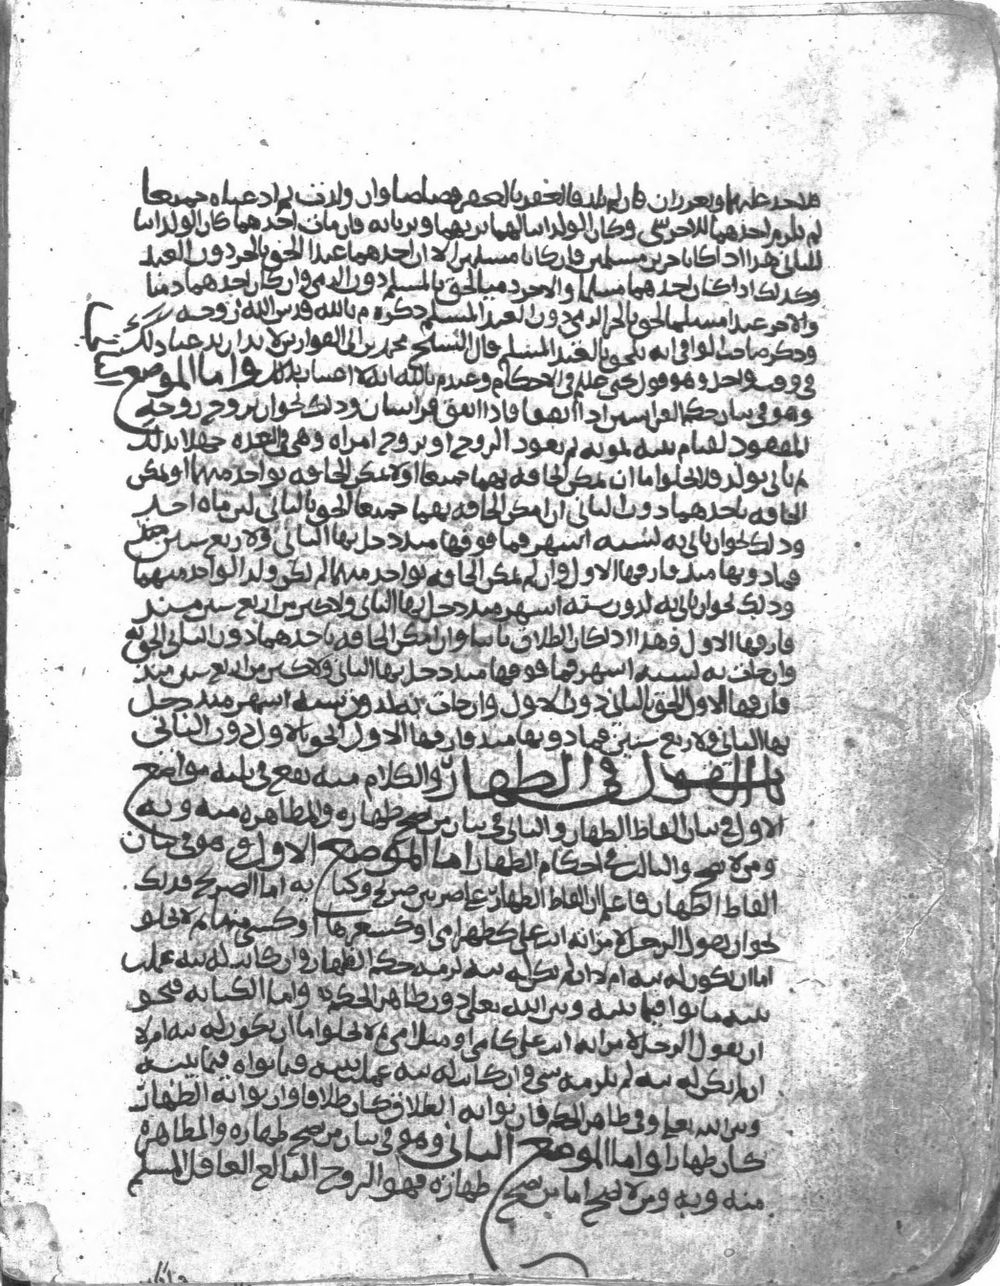 فلا حد عليهما ويعزران فان لم يلحقا الحقير بالحقير وصاصا وان ولدت ثم ادعياه جميعا
لم يلزم احدهما للاخر شي وكان الولد ابنا لهما يرثهما ويرثانه فان مات احدهما كان الولد ابنا
للثاني هذا اذا كانا حرين مسلمين فان كانا مسلمين الا ان احدهما عبدا الحق بالحر دون العبد
وكذلك اذا كان احدهما مسلما والاخر ذميا الحق بالمسلم دون الذمي وان كان احدهما ذميا
والاخر عبدا مسلما الحق بالحر الذمي دون العبد المسلم ذكره م بالله قدس الله روحه
وذكر صاحب الوافي انه يلحق بالعبد المسلم قال الشيخ محمد بن ابي الفوارس لا بد ان يدعيا ذلك
في وقت واحد وهو قول يحيى عليلم في الاحكام وعند م بالله انه لا اعتبار بذلك واما الموضع
وهو في بيان حكم الفراشين اذا اتفقا فاذا اتفق فراشان وذلك نحو ان تزوج زوجة
المفقود لقيام بينة بموته ثم يعود الزوج او تزوج امراة وهي في العدة جهلا بذلك
ثم تاتي بولد فلا يخلو اما ان يمكن الحاقه بهما جميعا او لا يمكن الحاقه بواحد منهما او يمكن
الحاقه باحدهما دون الثاني ان امكن الحاقه بهما جميعا الحق بالثاني لان ماه احد
وذلك نحو ان تاتي به لستة اشهر فما فوقها منذ دخل بها الثاني ولاربع سنين
فما دونها منذ فارقها الاول وان لم يمكن الحاقه بواحد منهما لم يكن ولد الواحد منهما
وذلك نحو ان تاتي به لدون ستة اشهر منذ دخل بها الثاني ولاكثر من اربع سنين منذ
فارقها الاول وهذا اذا كان الطلاق باينا وان امكن الحاقه باحدهما دون الثاني الحق به
وان جات به لستة اشهر فما فوقها منذ دخل بها الثاني ولاكثر من اربع سنين منذ
فارقها الاول الحق بالثاني دون الاول وان جات به لدون ستة اشهر منذ دخل
بها الثاني ولاربع سنين فما دونها منذ فارقها الاول الحق بالاول دون الثاني
باب القول في الظهار والكلام منه يقع في ثلثة مواضع
الاول في بيان الفاظ الظهار والثاني في بيان من يصح ظهاره والمظاهرة منه وبه
ومن لا يصح والثالث في احكام الظهار اما الموضع الاول وهو في بيان
الفاظ الظهار فاعلم ان الفاظ الظهار على ضربين صريح وكناية اما الصريح فذلك
نحو ان يقول الرجل لامراته انت علي كظهر امي او كشعرها او كشي منها فلا يخلو
اما ان يكون له نية ام لا ان لم يكن له نية لزمه حكم الظهار وان كانت له نية عملت
نيته ما نواه فيما بينه وبين الله تعالى دون ظاهر الحكم واما الكناية فنحو
ان يقول الرجل لامراته انت علي كامي او مثل امي فلا يخلو اما ان يكون له نية ام لا
ان لم يكن له نية لم يلزمه شي وان كانت له نية عمل بنيته فيما نواه فيما بينه
وبين الله تعالى وفي ظاهر الحكم فان نوا به الطلاق كان طلاقا وان نوا به الظهار
كان ظهارا واما الموضع الثاني وهو في بيان من يصح ظهاره والمظاهرة
منه وبه ومن لا يصح اما من يصح ظهاره فهو الزوج البالغ العاقل المسلم